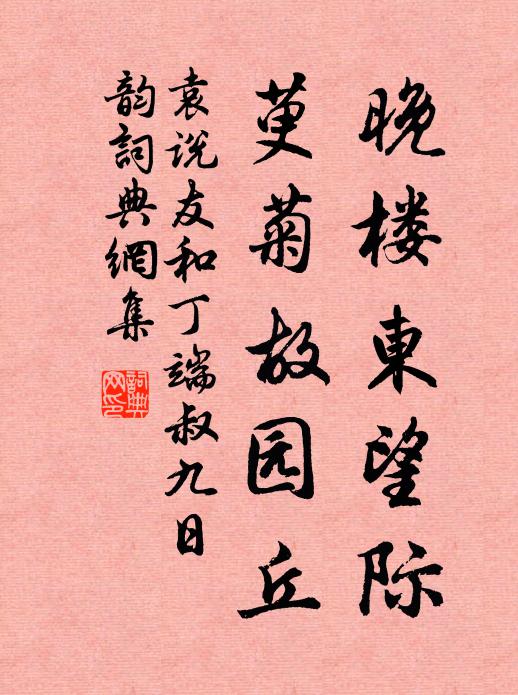 晚楼東望际
萸菊故园丘
袁说友和丁端叔九日
韵詞典網集
詞典网印